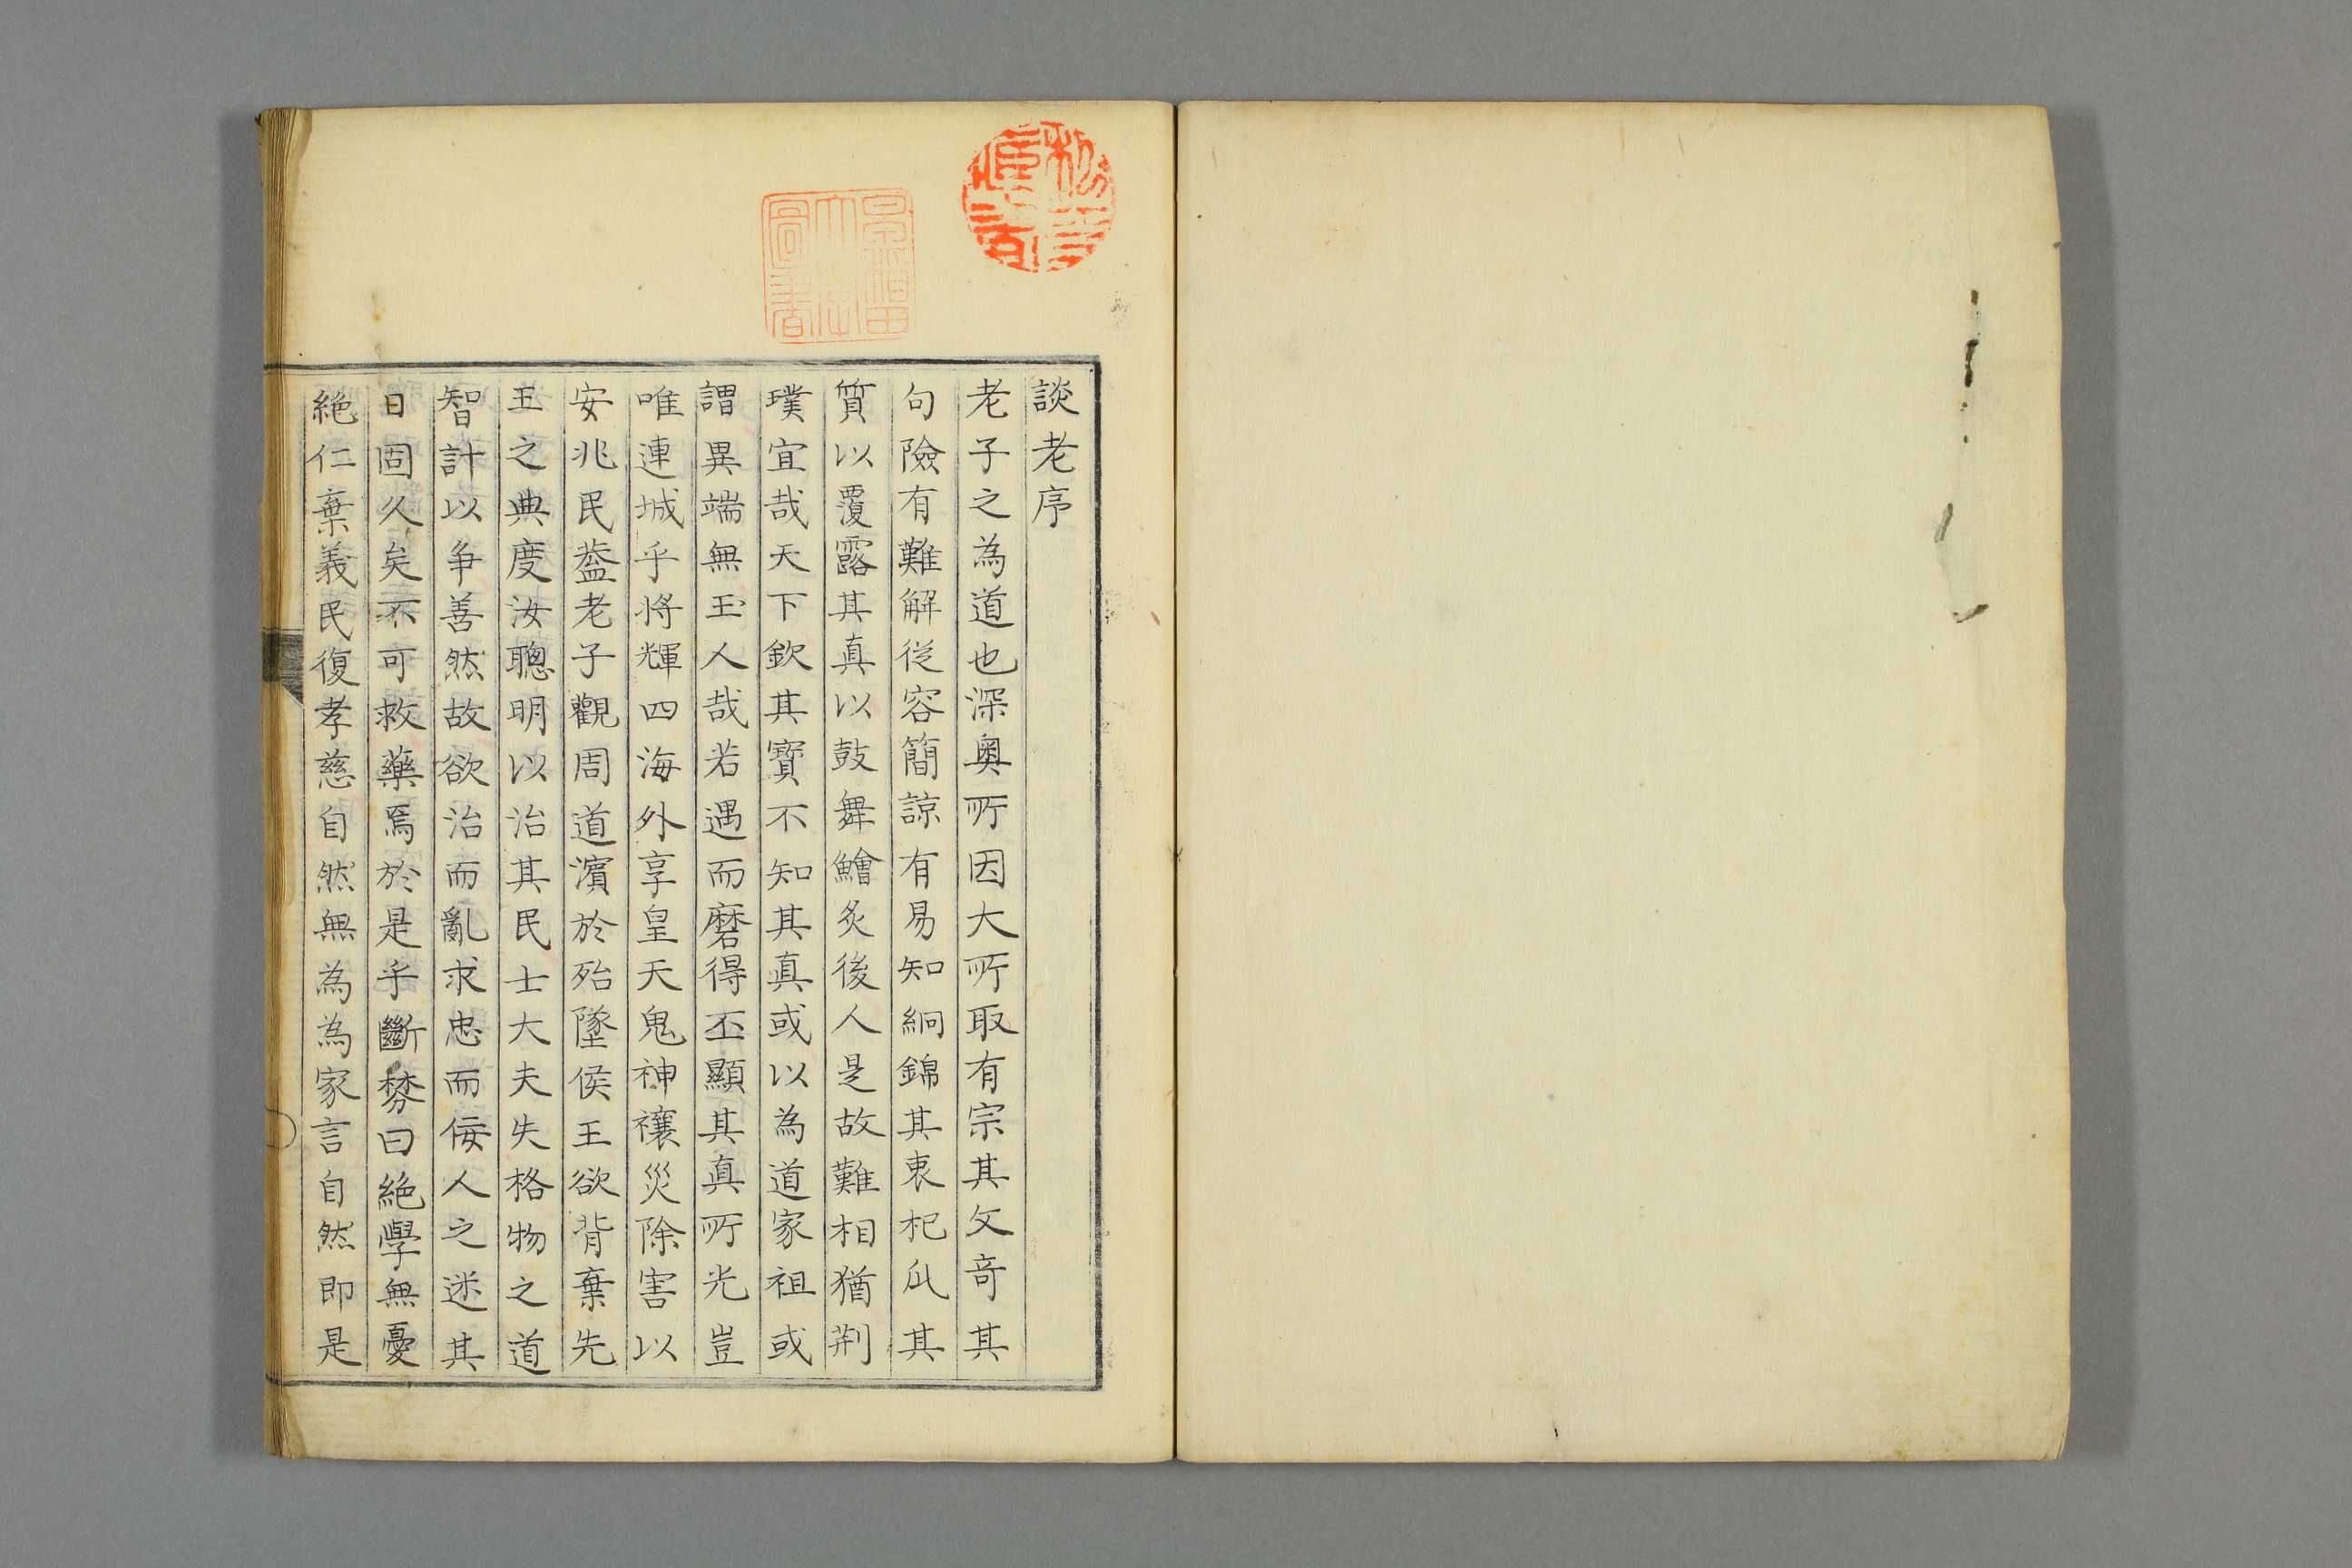 談老序
老子之為道也深奧所因大所取有宗其文奇其
句險有難解從容簡諒有易知絅錦其衷杞瓜其
質以覆露其真以鼓舞鱠炙後人是故難相猶荆
璞宜哉天下欽其寳不知其真或以為道家祖或
謂異端無玉人哉若遇而磨得丕顯其真所光豈
唯連城乎将輝四海外享皇天鬼神禳災除害以
安兆民葢老子觀周道濵於殆墜侯王欲背棄先
王之典度汝聰明以治其民士大夫失格物之道
智計以争善然故欲治而亂求忠而佞人之迷其
日固久矣不可救藥焉於是乎斷棼曰絶學無憂
絶仁棄義民復孝慈自然無為為家言自然即是
早稲田大学圖書